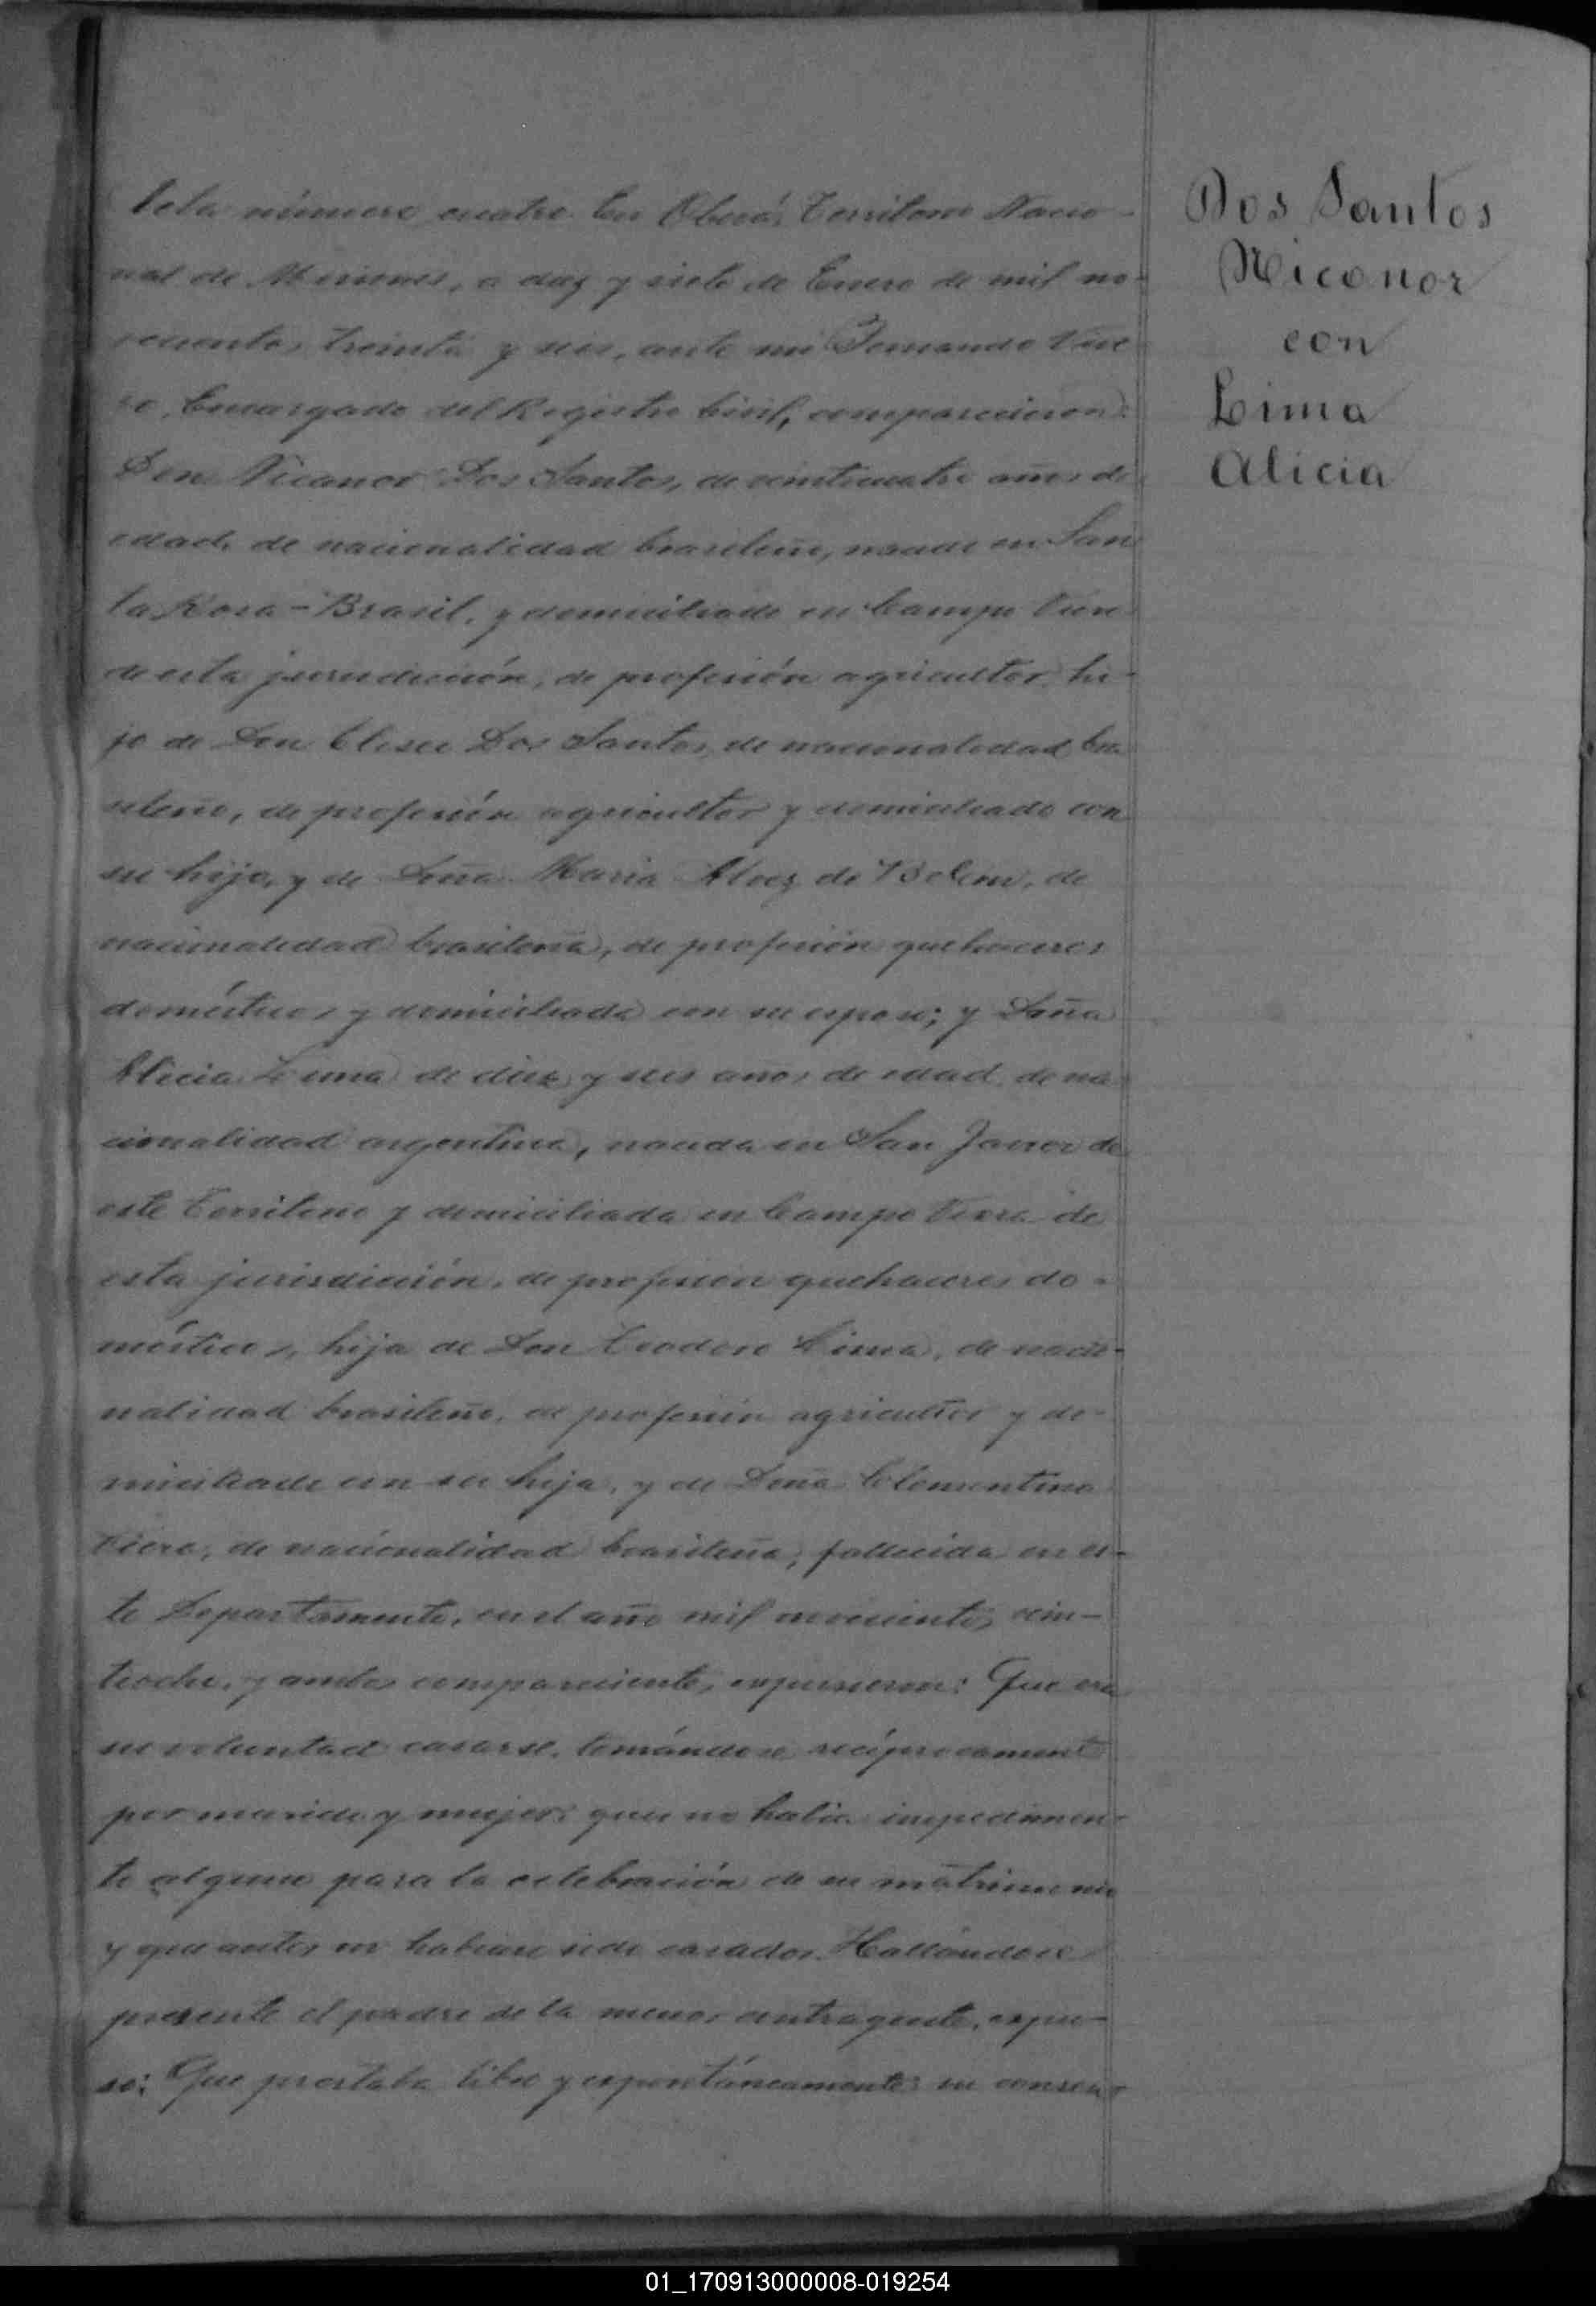 Acta número cuatro. En Oberá, Territorio Nacio-
nal de Misiones, a diez y siete de Enero de mil no-
vecientos treinta y seis, ante mi Fernando
Encargado del Registro Civil, comparecieron:
Don Nicanor Dos Santos, de veinticuatro años de
edad, de nacionalidad brasileño, nacido en San
ta Rosa-Brasil, y domiciliado en Campo Viera
de esta jurisdicción, de profesión agricultor, hi-
jo de Don Dos Santos, de nacionalidad bra
sileño, de profesión agricultor y domiciliado con
su hijo, y de Doña Maria Alvez de Belem, de
nacionalidad brasileña, de profesión quehaceres
domésticos y domiciliada con su esposo; y Doña
Alicia Lima de diez y seis años de edad, de na
cionalidad argentina, nacida en San Javier de
este Territorio y domiciliada en Campo Viera de
esta jurisdicción, de profesión quehaceres do-
mésticos, hija de Don Teodoro Lima, de nacio-
nalidad brasileño, de profesión agricultor y do-
miciliado con su hija, y de Doña Clementina
Viera, de nacionalidad brasileña, fallecida en es-
te Departamento, en el año mil novecientos vein-
tiocho, y ambos comparecientes expusieron: Que era
su voluntad casarse, tomándose recíprocamente
por marido y mujer: que no habia impedimen-
to alguno para la celebración de su matrimonio
y que antes no habian sido casados. Hallándose
presente el padre de la menor contrayente, expu-
so: Que prestaba libre y espontáneamente su consen-
Dos Santos
Niconor
con
Lima
Alicia
01_170913000008-019254